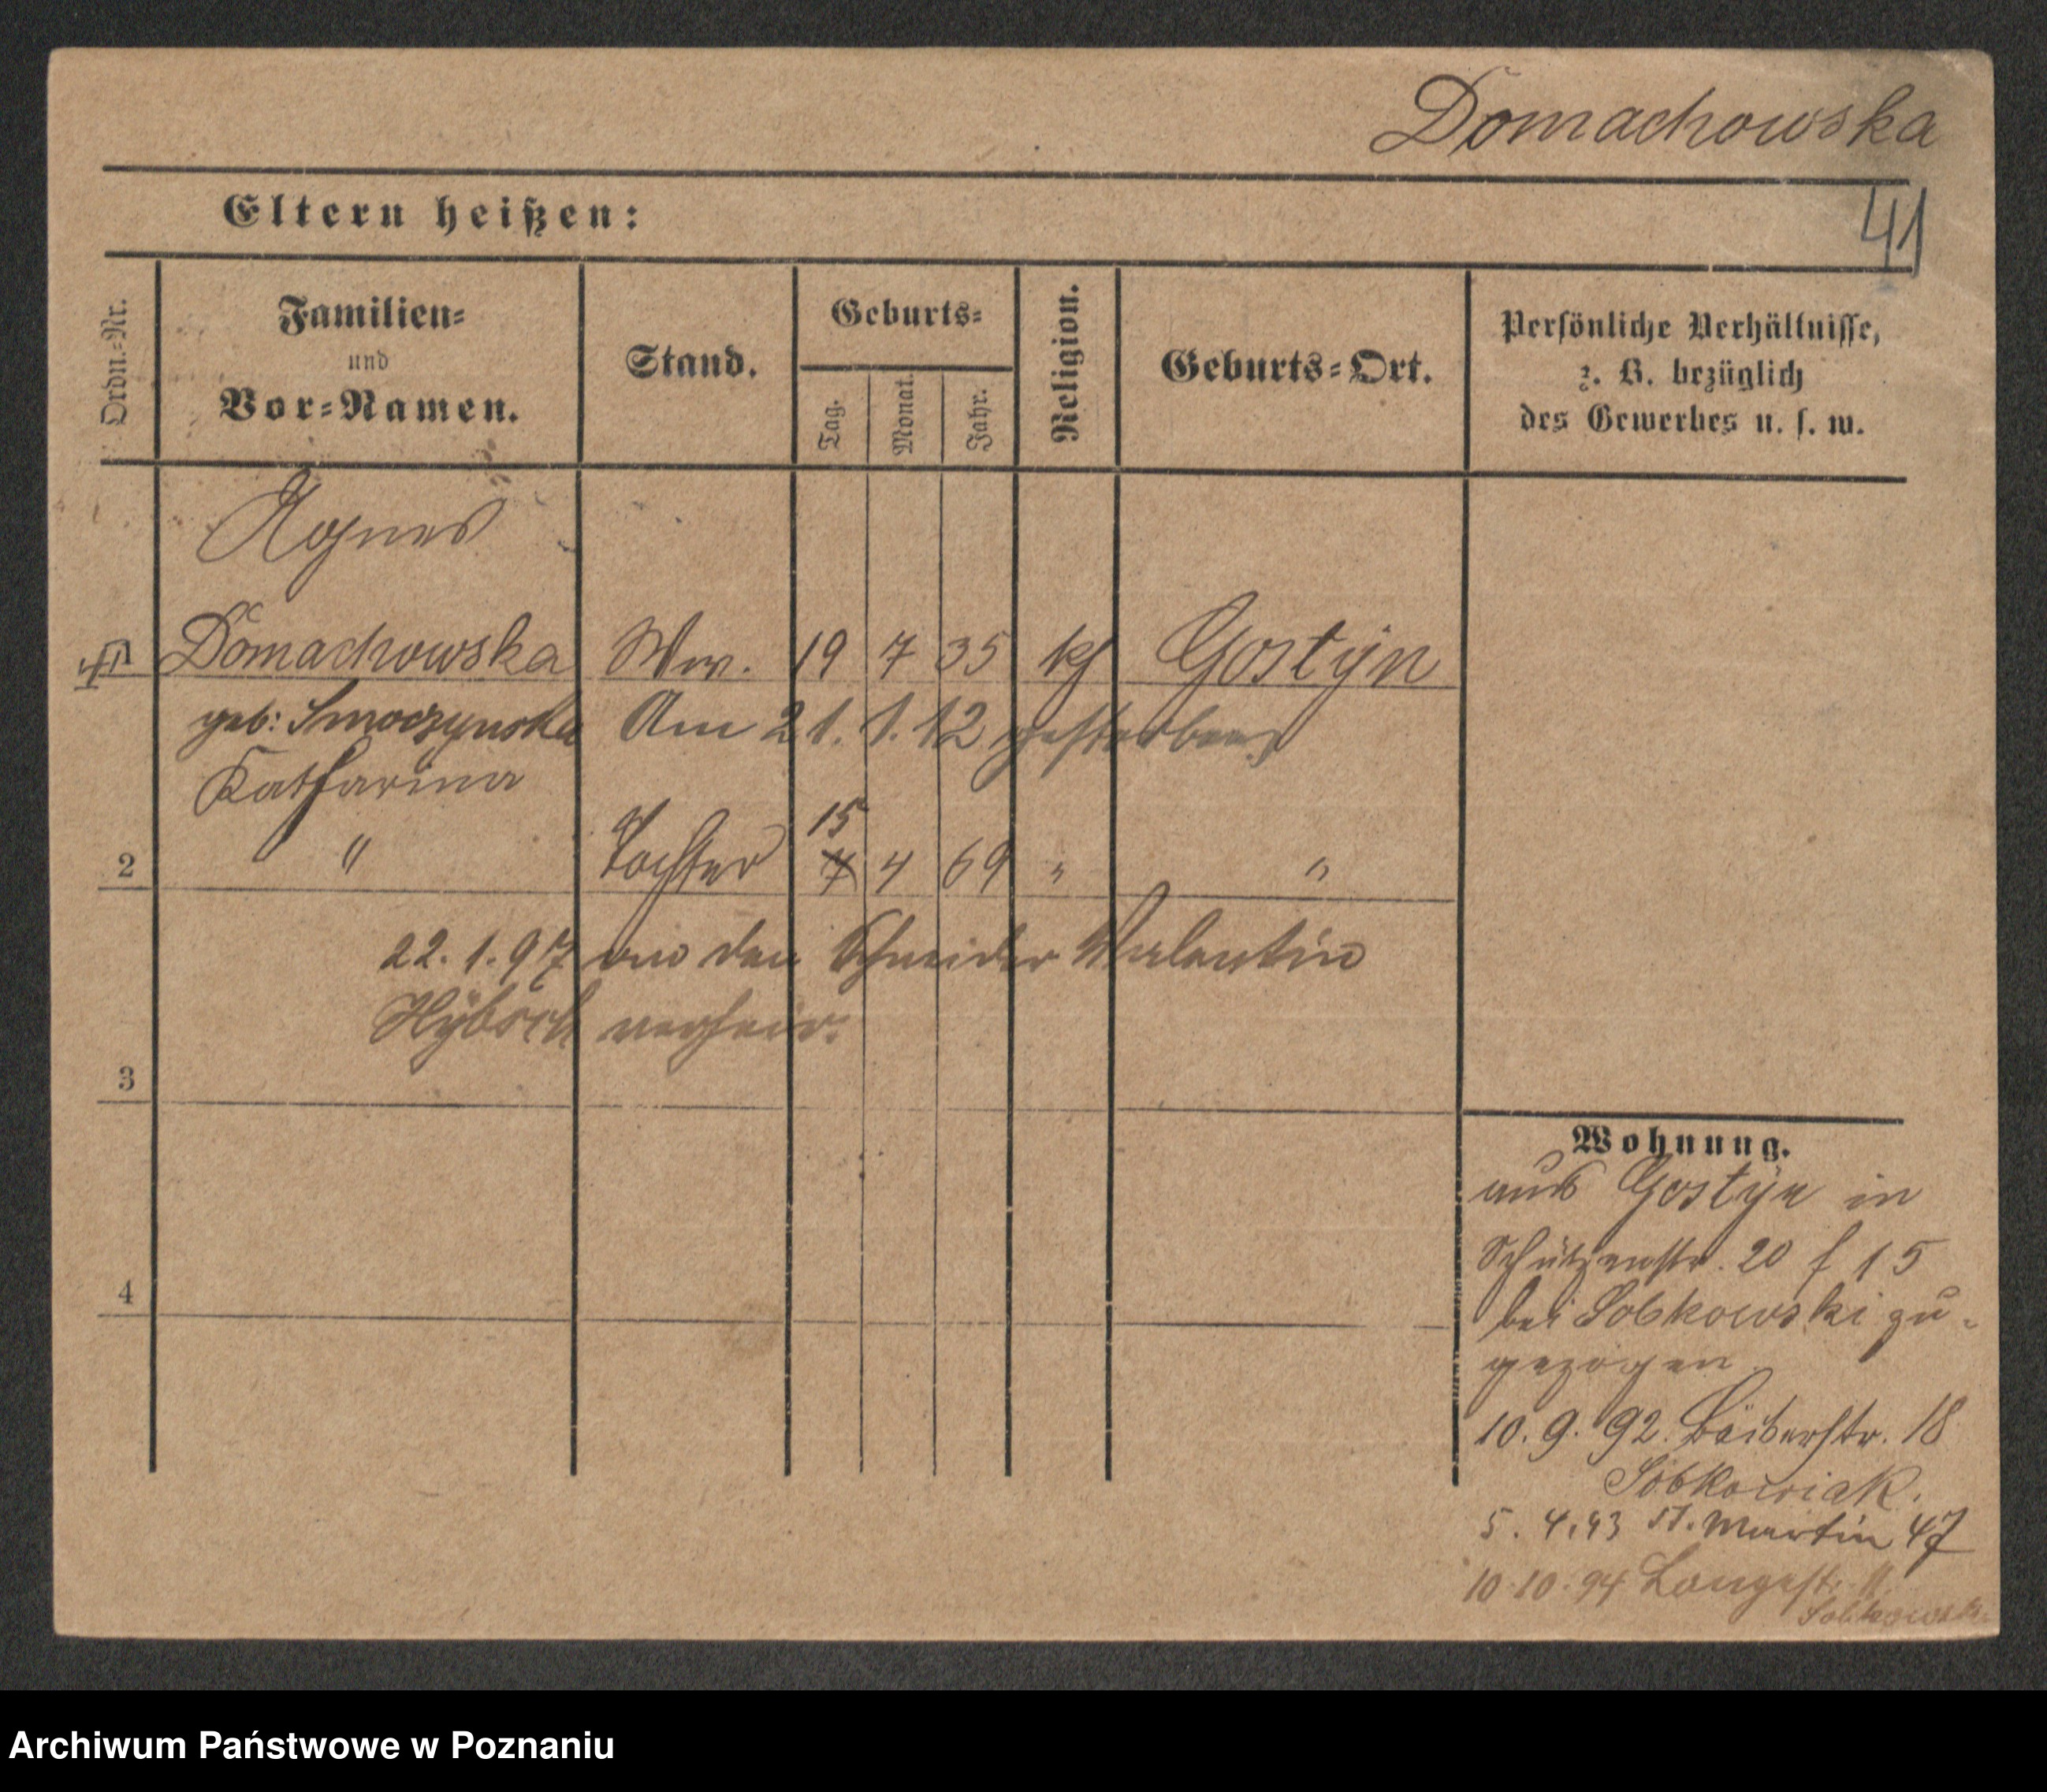 Domachowska
41
Eltern heißen:
Ordn.-Nr.
Familien-
und
Vor-Namen.
Stand.
Geburts-
Tag.
Monat.
Jahr.
Religion.
Geburts-Ort.
Persönliche Verhältnisse,
z. B. bezüglich
des Gewerbes u. s. w.
Agnes
Domachowska Ww. 19 7 35 kf Gostÿn
geb: Smoczynska Am 21. 1. 12 gestorben
Katharina
15
2 " Tochter 7 4 69 " "
22. 1. 97 an den Schneider Valentin
Hÿbsch verheir.
3
4
Wohnung.
aus Gostÿn in
Schützenstr. 20 f 15
bei Sobkowski zu-
gezogen
10. 9. 92. Bäckerstr. 18
Sobkowiak.
5. 4. 93 St. Martin 47
10. 10. 94 Langestr. 11
Sobkowski
Archiwum Państwowe w Poznaniu